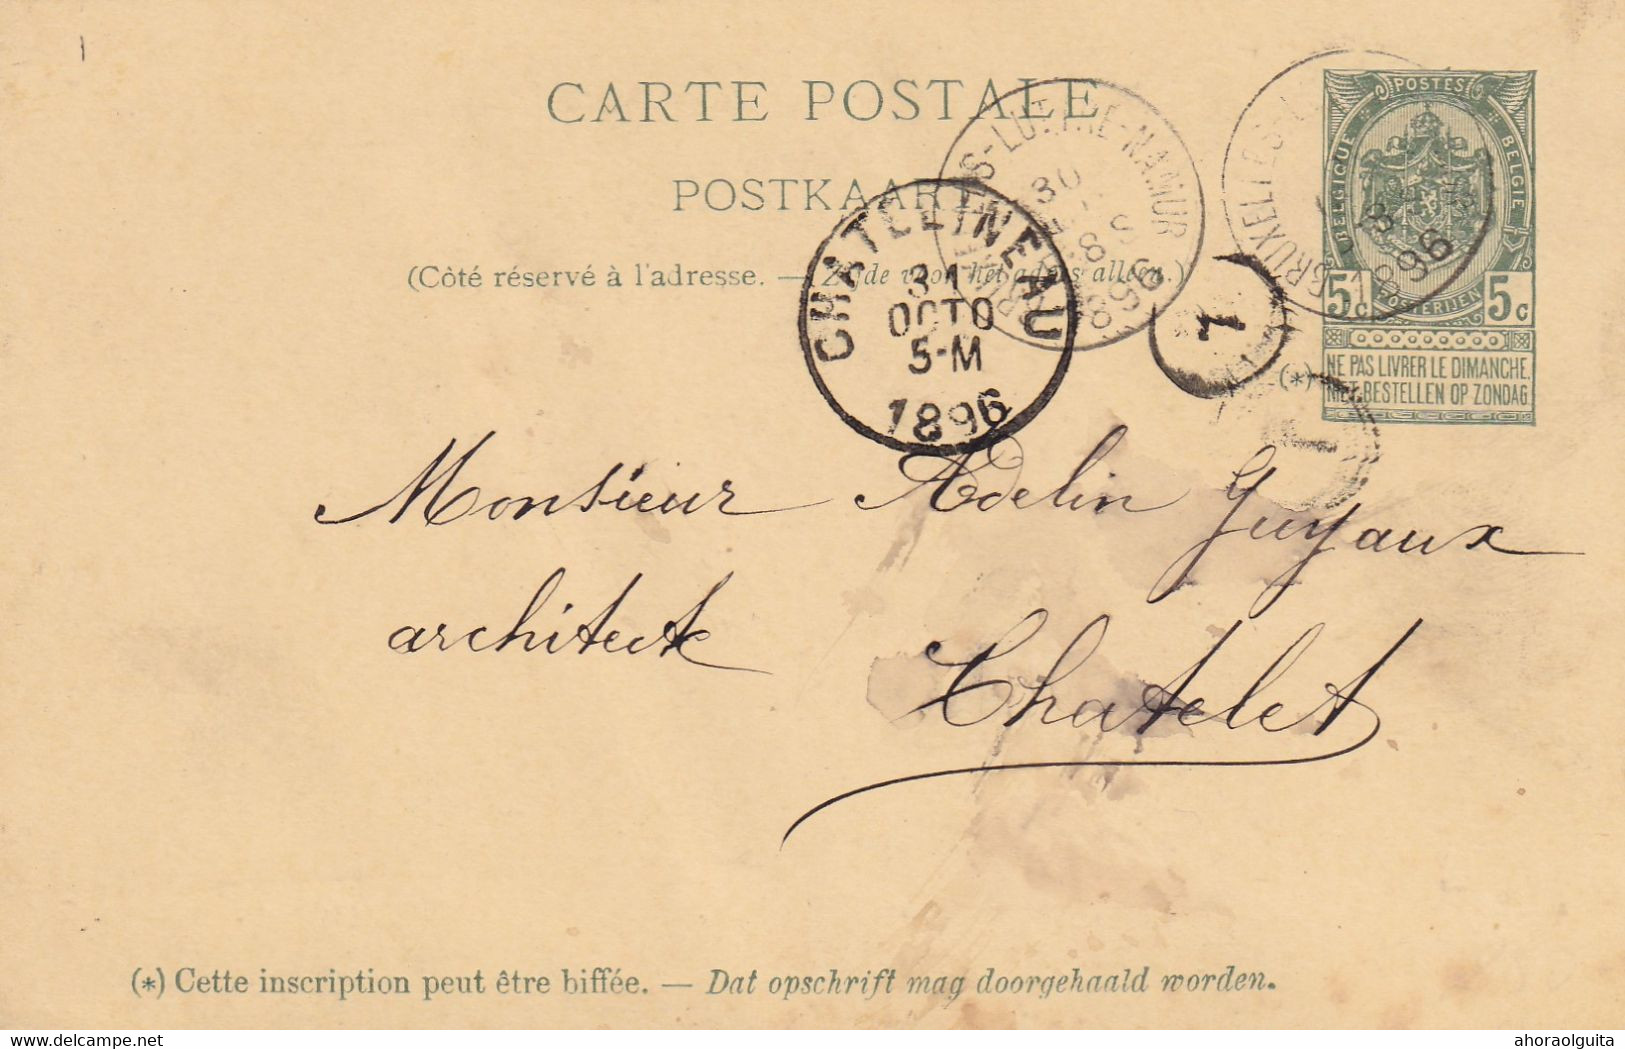 CARTE POSTALE
POSTKAART
(Côté réservé à l'adresse. — Zijde voor het adres alleen.)
POSTES
BELGIQUE
BELGIE
5 c POSTERIJEN 5 c
(*) NE PAS LIVRER LE DIMANCHE.
NIET BESTELLEN OP ZONDAG
1896
NAMUR
CHATELINEAU
31
OCTO
5-M
1896
1
Monsieur Adelin Guyaux
architecte
Chatelet
(*) Cette inscription peut être biffée. — Dat opschrift mag doorgehaald worden.
delcampe.net
ahoraolguita